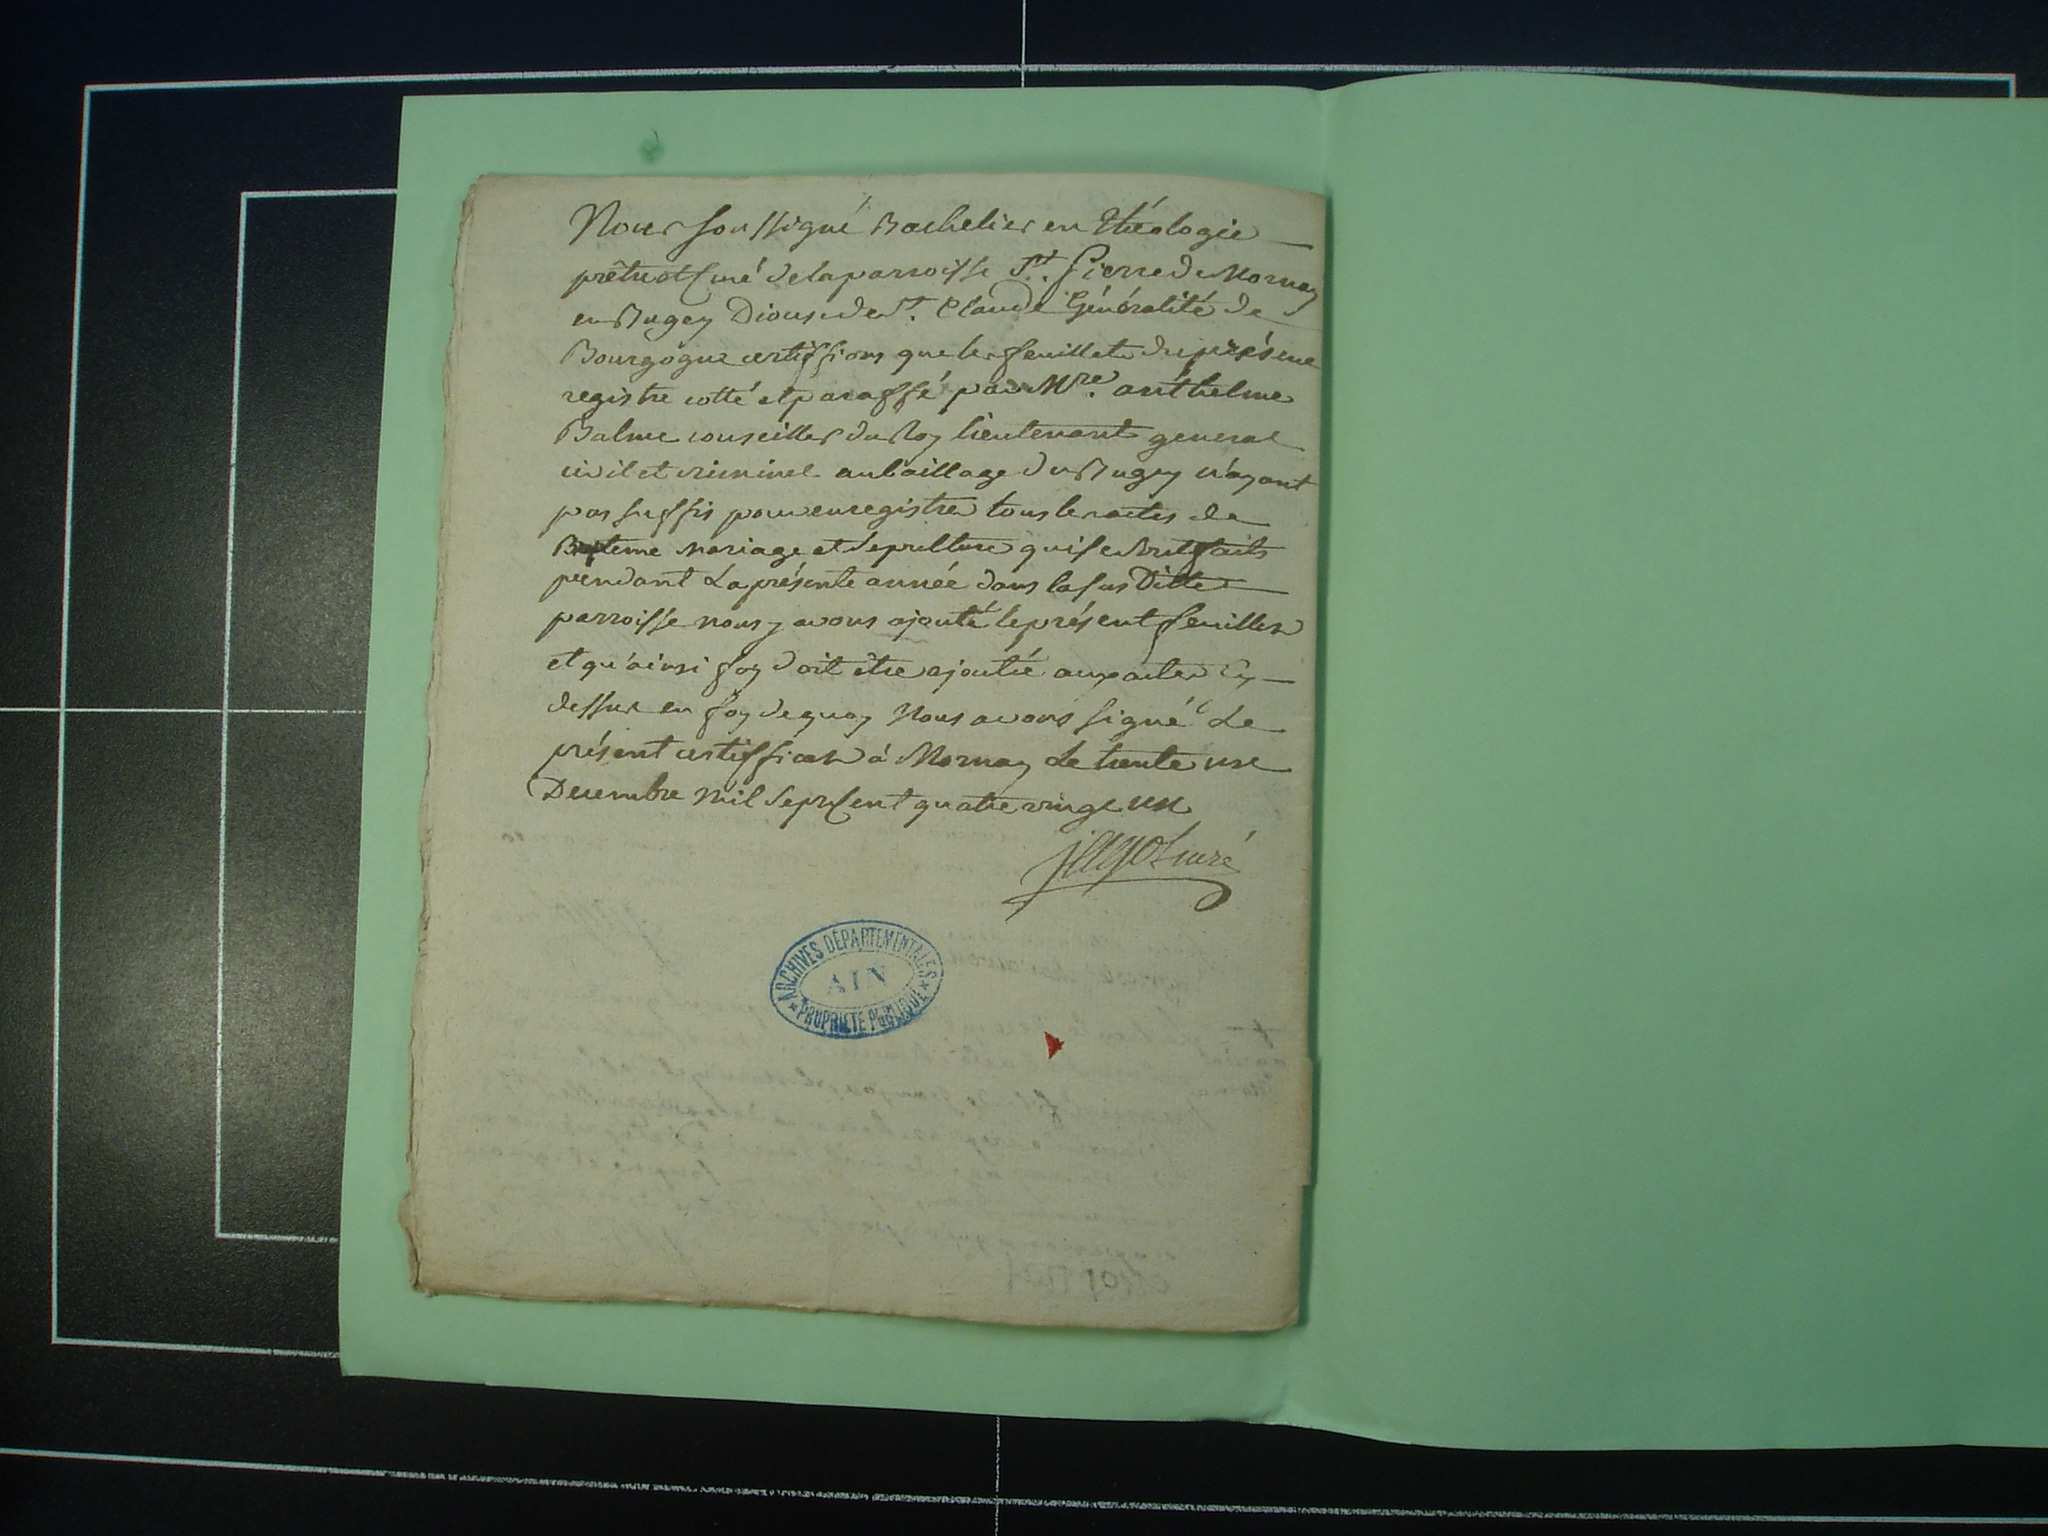 Nous soussigné Bachelier en théologie
prêtre et Curé de la parroisse St. Pierre de Mornay
en Bugey Diousede St. Claude Généralité de
Bourgogne certiffions que les feuillets du présent
registre cotté et paraffé par Mre. anthelme
Balme conseiller du Roy lieutenant general
civil et criminel au baillage du Bugey n'ayant
pas suffis pour enregistrer tous les actes de
Bapteme mariage et sepulture qui se sont faits
pendant La présente année dans la sus Ditte
parroisse nous y avons ajouté le présent feuillet
et qu'ainsi foy doit être ajoutée aux actes cy
dessus en foy de quoy Nous avons signé Le
présent certifficat à Mornay Le trente une
Decembre mil sept cent quatre vingt un
curé
ARCHIVES DÉPARTEMENTALES
AIN
PROPRIÉTÉ PUBLIQUE